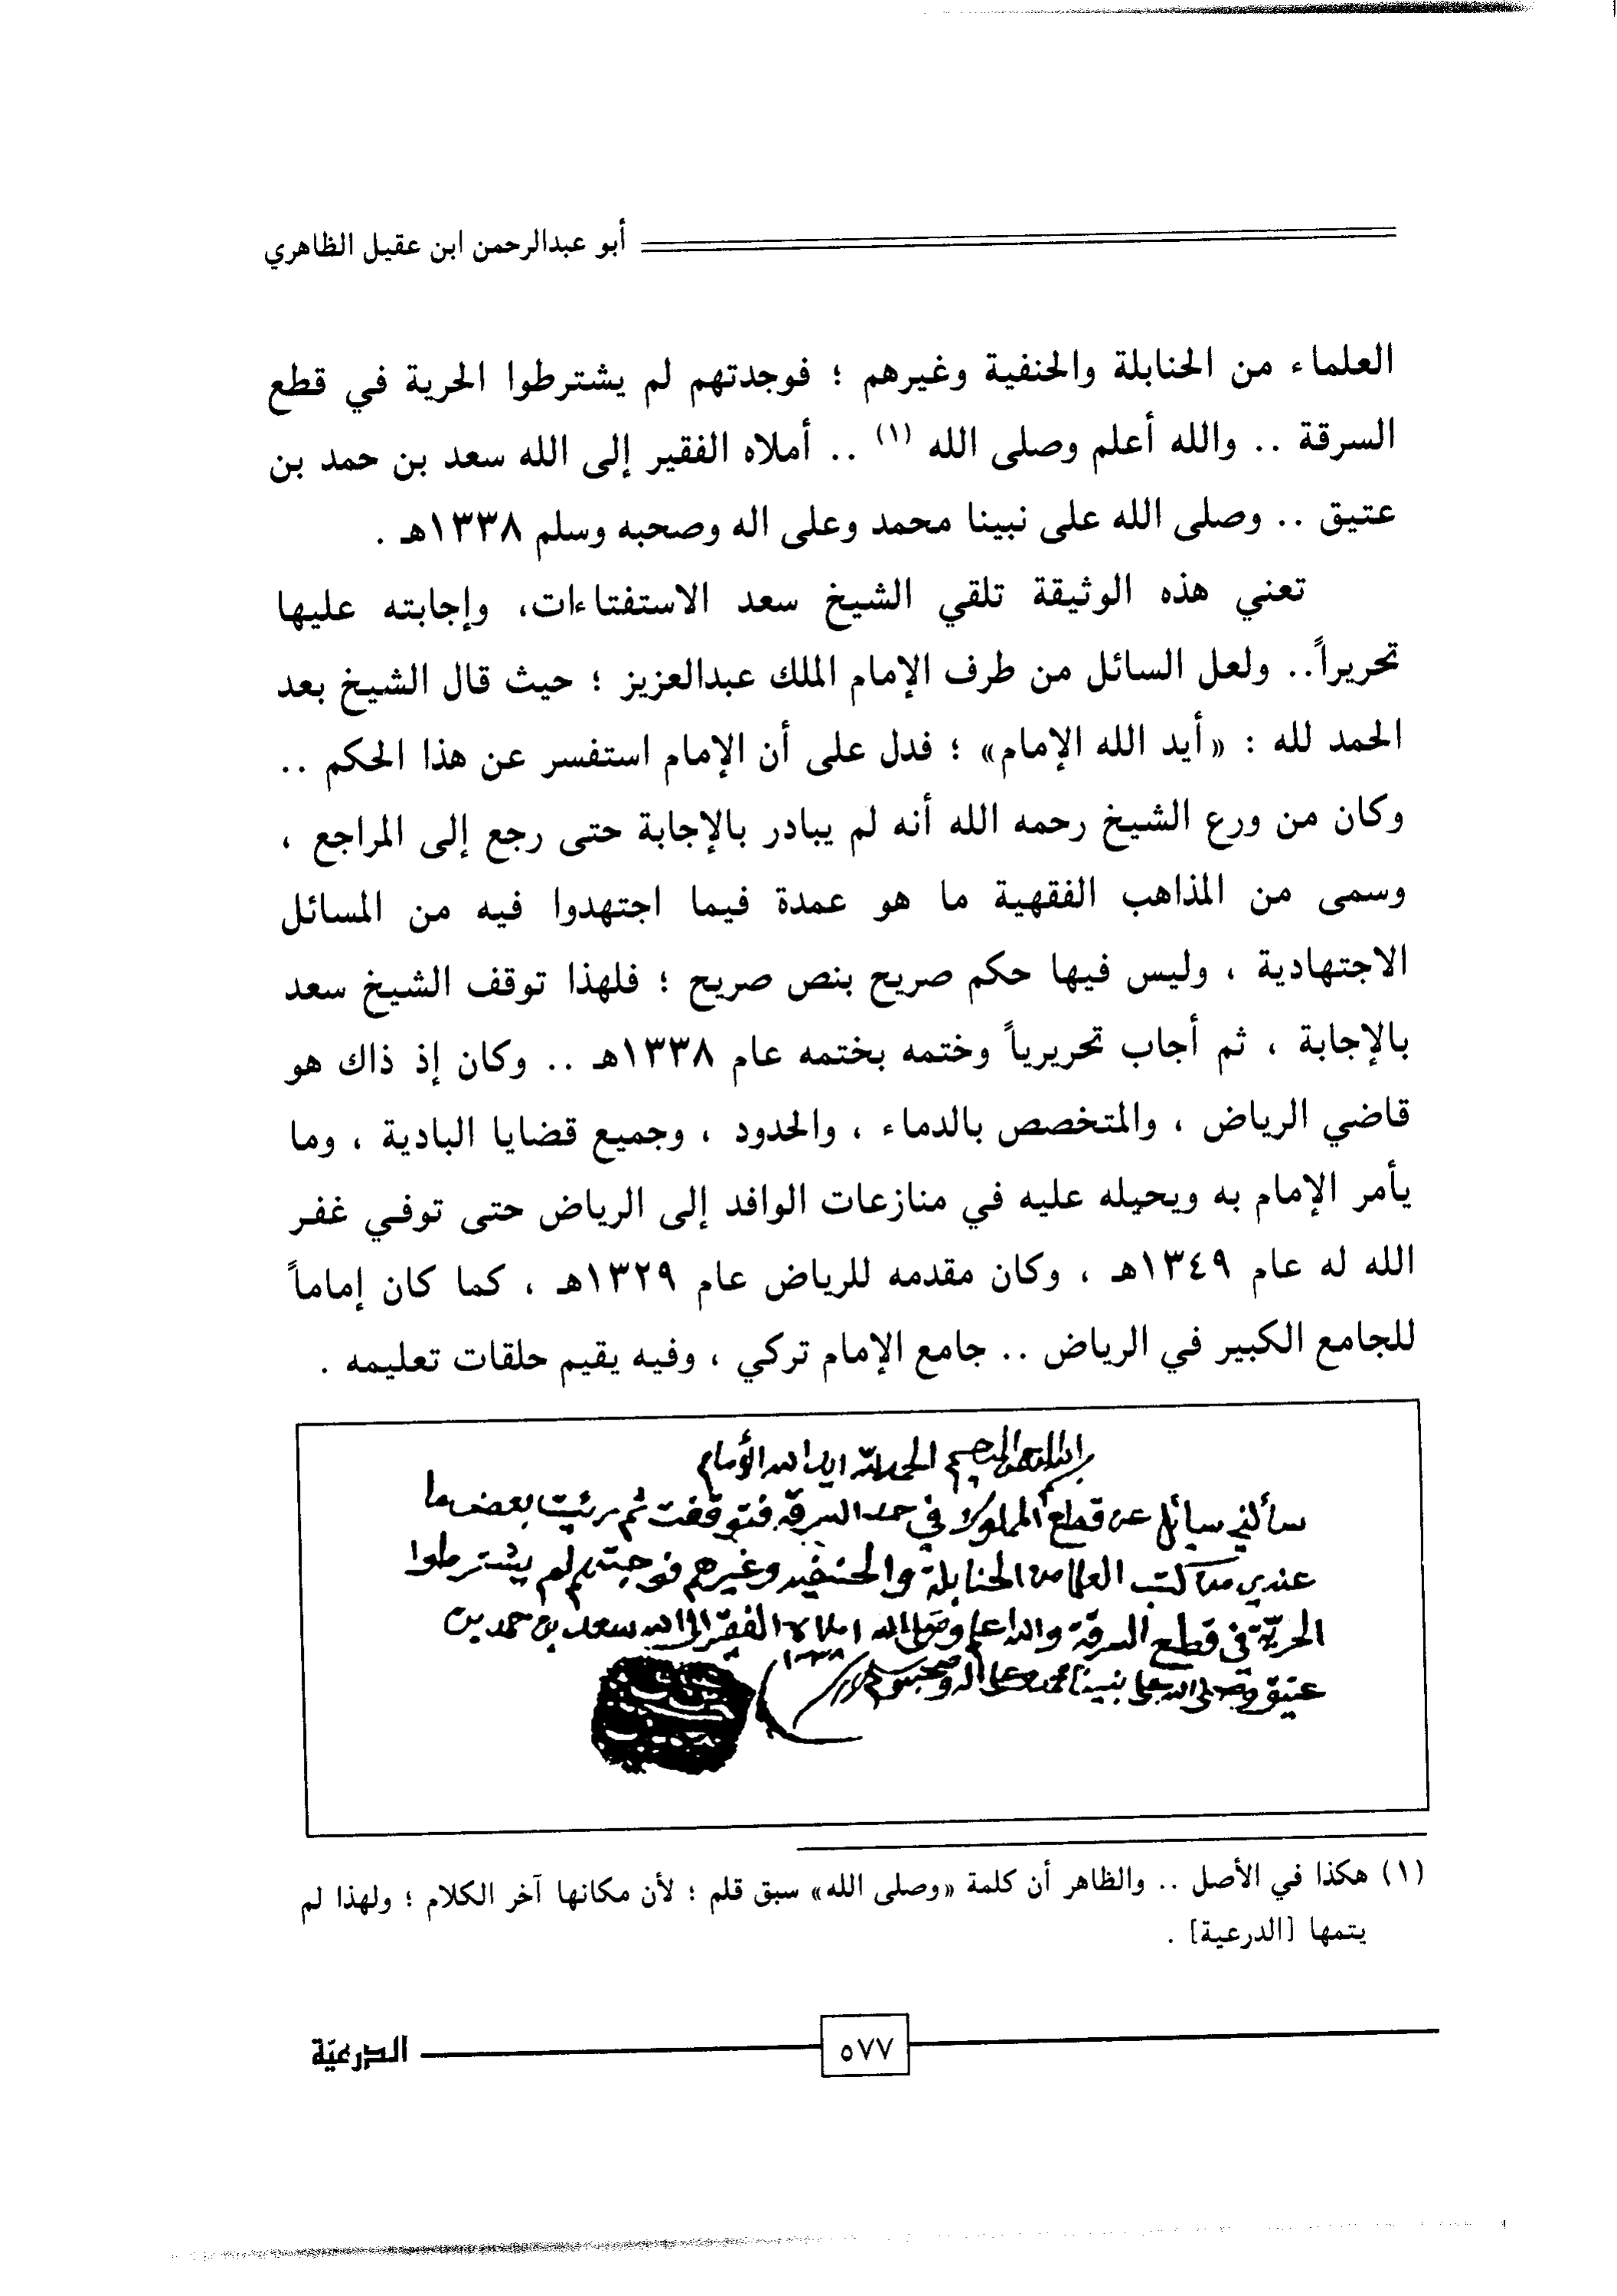 أبو عبدالرحمن ابن عقيل الظاهري
العلماء من الحنابلة والحنفية وغيرهم ؛ فوجدتهم لم يشترطوا الحرية في قطع
السرقة .. والله أعلم وصلى الله (١) .. أملاه الفقير إلى الله سعد بن حمد بن
عتيق .. وصلى الله على نبينا محمد وعلى اله وصحبه وسلم ١٣٣٨هـ .
تعني هذه الوثيقة تلقي الشيخ سعد الاستفتاءات، وإجابته عليها
تحريراً.. ولعل السائل من طرف الإمام الملك عبدالعزيز ؛ حيث قال الشيخ بعد
الحمد لله : «أيد الله الإمام» ؛ فدل على أن الإمام استفسر عن هذا الحكم ..
وكان من ورع الشيخ رحمه الله أنه لم يبادر بالإجابة حتى رجع إلى المراجع ،
وسمى من المذاهب الفقهية ما هو عمدة فيما اجتهدوا فيه من المسائل
الاجتهادية ، وليس فيها حكم صريح بنص صريح ؛ فلهذا توقف الشيخ سعد
بالإجابة ، ثم أجاب تحريرياً وختمه بختمه عام ١٣٣٨هـ .. وكان إذ ذاك هو
قاضي الرياض ، والمتخصص بالدماء ، والحدود ، وجميع قضايا البادية ، وما
يأمر الإمام به ويحيله عليه في منازعات الوافد إلى الرياض حتى توفي غفر
الله له عام ١٣٤٩هـ ، وكان مقدمه للرياض عام ١٣٢٩هـ ، كما كان إماماً
للجامع الكبير في الرياض .. جامع الإمام تركي ، وفيه يقيم حلقات تعليمه .
بسم الله الرحمن الرحيم الحمد لله ايد الله الأمام
سألني سايل عن قطع المملوك في حد السرقة فتوقفت ثم رئيت بعض ما
عندي من كتب العلما من الحنابلة والحنفيه وغيرهم فوجدتهم لم يشترطوا
الحريّة في قطع السرقة والله اعلم وصلى الله املاه الفقير الى الله سعد بن حمد بن
عتيق وصلى الله على نبينا محمد وعلى اله وصحبه وسلم ١٣٣٨
(١) هكذا في الأصل .. والظاهر أن كلمة «وصلى الله» سبق قلم ؛ لأن مكانها آخر الكلام ؛ ولهذا لم
يتمها [الدرعية] .
٥٧٧
الدرعيّة